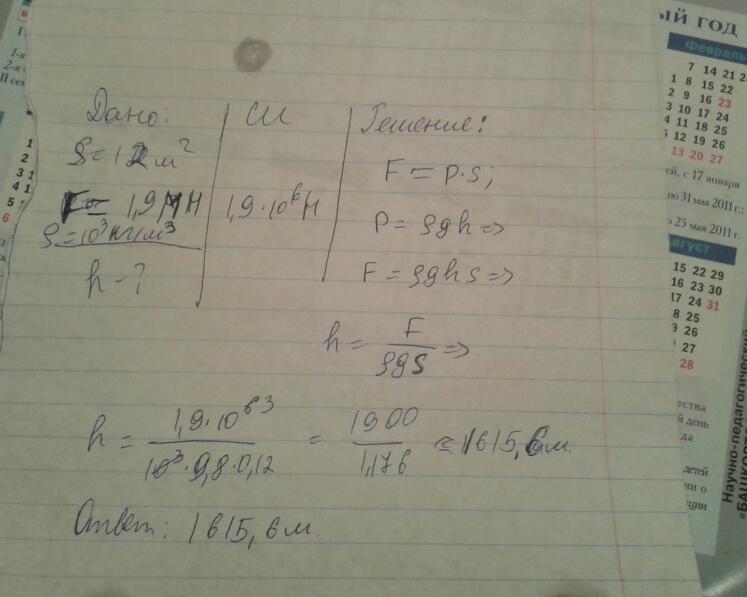 Дано: СИ Решение:
S = 12 м²
F = p·s;
F = 1,9 МН 1,9·10⁶Н
ρ = 10³ кг/м³
P = ρgh ⇒
h - ?
F = ρghs ⇒
h = F/ρgS ⇒
h = 1,9·10⁶ ³/10³·9,8·0,12 = 1900/1,176 ≈ 1615,6м.
Ответ: 1615,6м.
ый год
Февраль
7 14 21
1 8 15 22
2 9 16 23
3 10 17 24
4 11 18 25
5 12 19 26
13 20 27
ей, с 17 января
по 31 мая 2011 г.;
о 25 мая 2011 г.
август
15 22 29
16 23 30
17 24 31
18 25
9 26
27
28
ества
й день
да
детей
ни о
ции
Научно-педагогический
«БАШКОР
1-я
2-я
II сем
1
2
3 1
4 1
5
6